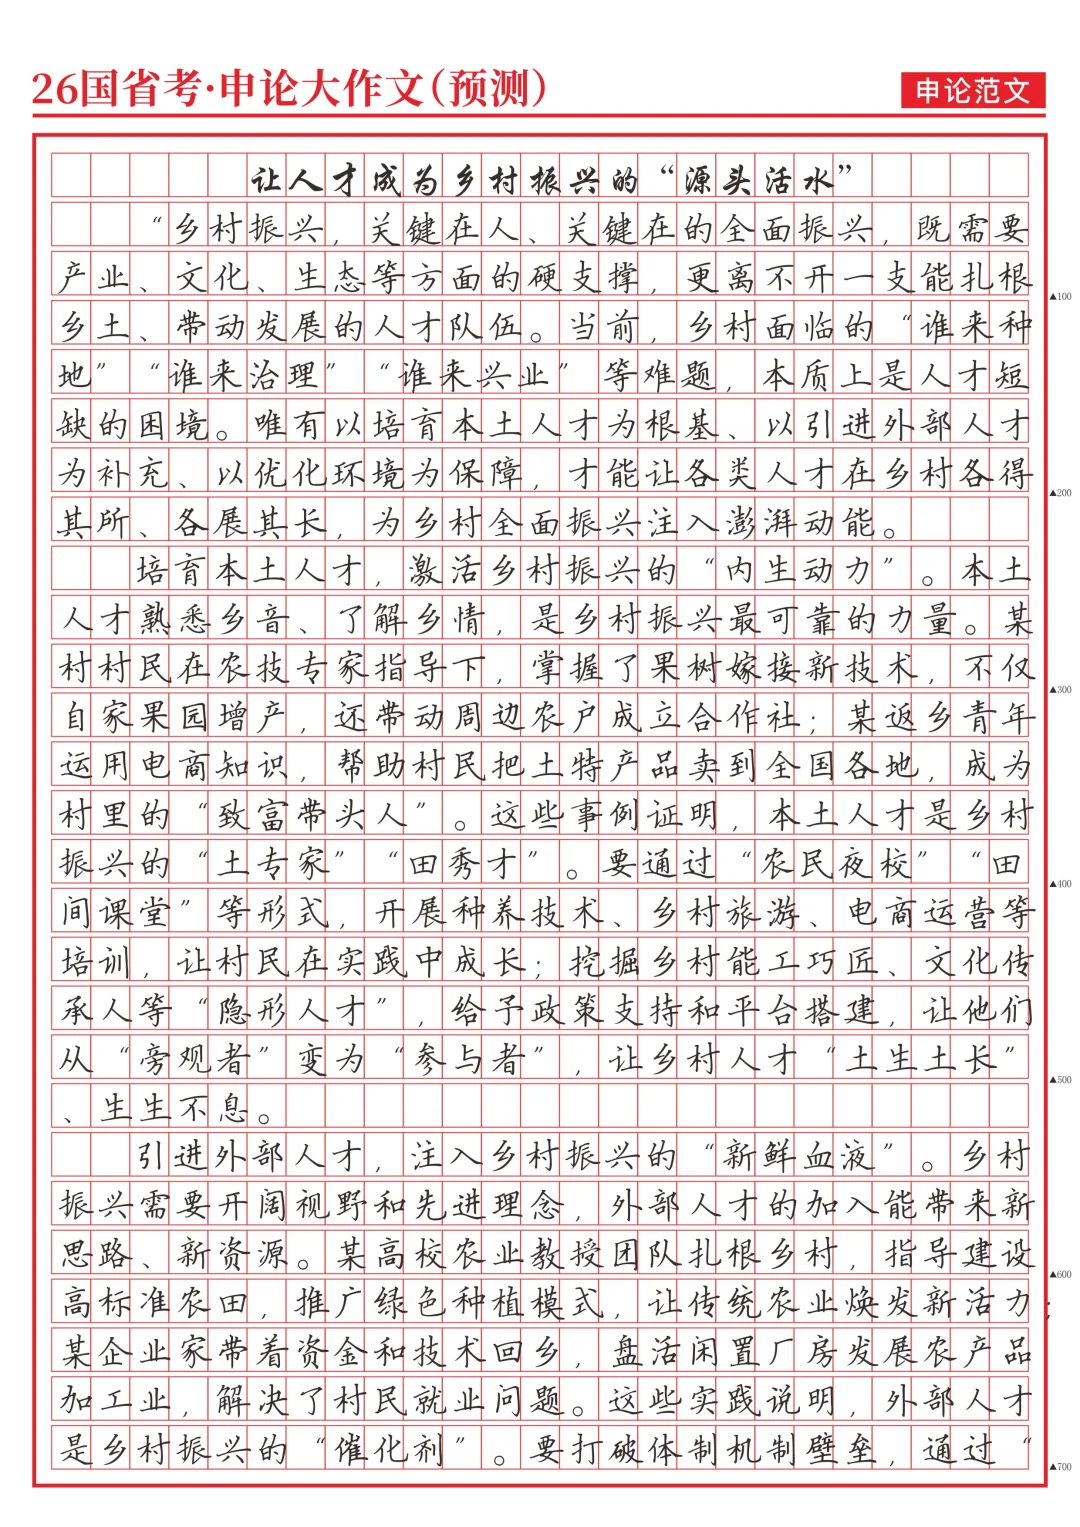 26国省考·申论大作文（预测）
申论范文
让人才成为乡村振兴的“源头活水”
“乡村振兴，关键在人、关键在的全面振兴，既需要
产业、文化、生态等方面的硬支撑，更离不开一支能扎根
▲100
乡土、带动发展的人才队伍。当前，乡村面临的“谁来种
地”“谁来治理”“谁来兴业”等难题，本质上是人才短
缺的困境。唯有以培育本土人才为根基、以引进外部人才
为补充、以优化环境为保障，才能让各类人才在乡村各得
▲200
其所、各展其长，为乡村全面振兴注入澎湃动能。
培育本土人才，激活乡村振兴的“内生动力”。本土
人才熟悉乡音、了解乡情，是乡村振兴最可靠的力量。某
村村民在农技专家指导下，掌握了果树嫁接新技术，不仅
▲300
自家果园增产，还带动周边农户成立合作社；某返乡青年
运用电商知识，帮助村民把土特产品卖到全国各地，成为
村里的“致富带头人”。这些事例证明，本土人才是乡村
振兴的“土专家”“田秀才”。要通过“农民夜校”“田
▲400
间课堂”等形式，开展种养技术、乡村旅游、电商运营等
培训，让村民在实践中成长；挖掘乡村能工巧匠、文化传
承人等“隐形人才”，给予政策支持和平台搭建，让他们
从“旁观者”变为“参与者”，让乡村人才“土生土长”
▲500
、生生不息。
引进外部人才，注入乡村振兴的“新鲜血液”。乡村
振兴需要开阔视野和先进理念，外部人才的加入能带来新
思路、新资源。某高校农业教授团队扎根乡村，指导建设
▲600
高标准农田，推广绿色种植模式，让传统农业焕发新活力；
某企业家带着资金和技术回乡，盘活闲置厂房发展农产品
加工业，解决了村民就业问题。这些实践说明，外部人才
是乡村振兴的“催化剂”。要打破体制机制壁垒，通过“
▲700